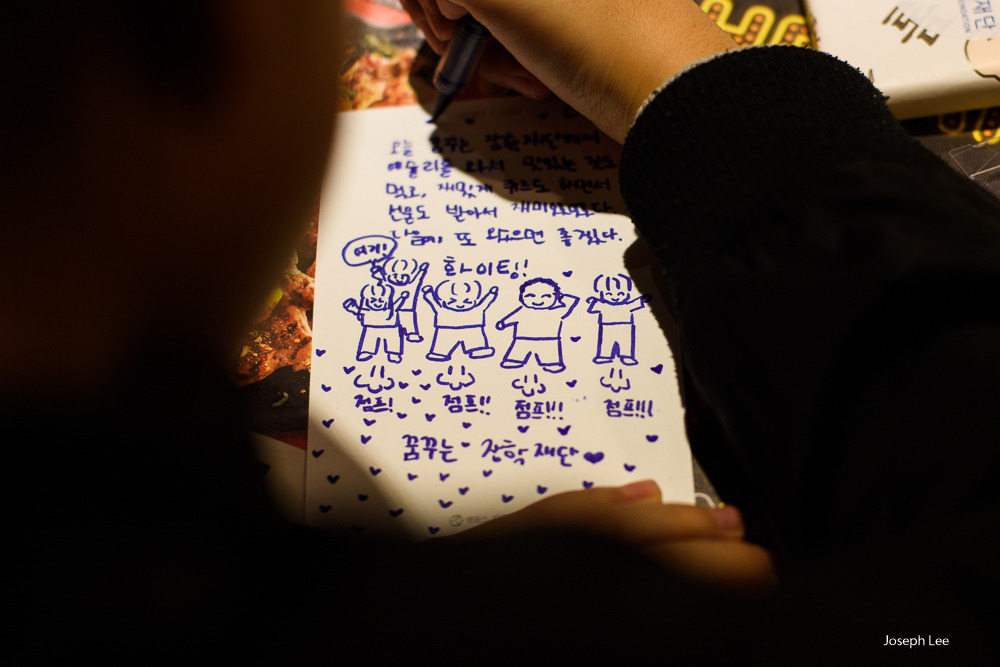 재단
오늘 꿈꾸는 장학재단에서
예술리를 와서 맛있는 것도
먹고, 재밌게 퀴즈도 하면서
선물도 받아서 재미있었다.
다음에 또 왔으면 좋겠다.
여기!
화이팅!!
점프! 점프!! 점프!!! 점프!!!
꿈꾸는 장학재단
Joseph Lee